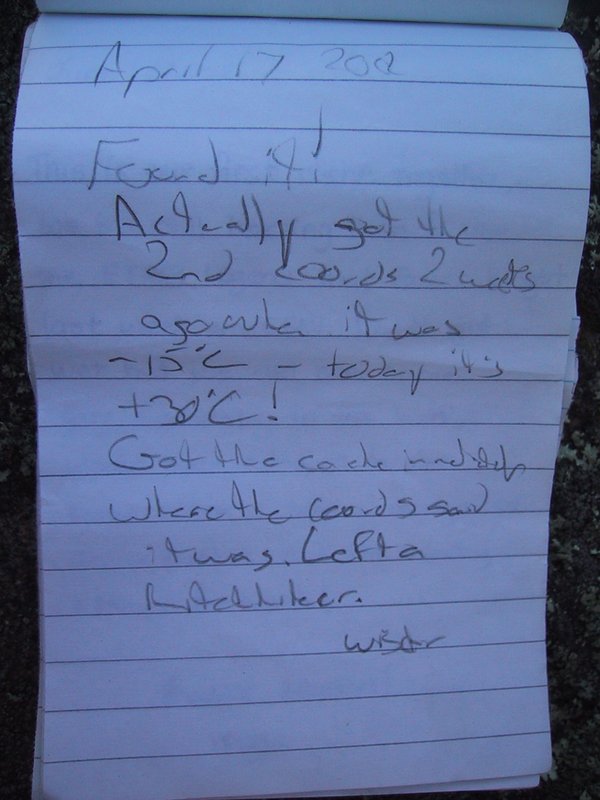 April 17 2002
Found it!
Actually got the
2nd coords 2 weeks
ago when it was
-15°C - today it's
+30°C!
Got the cache immediately
where the coords said
it was. Left a
hitchhiker.